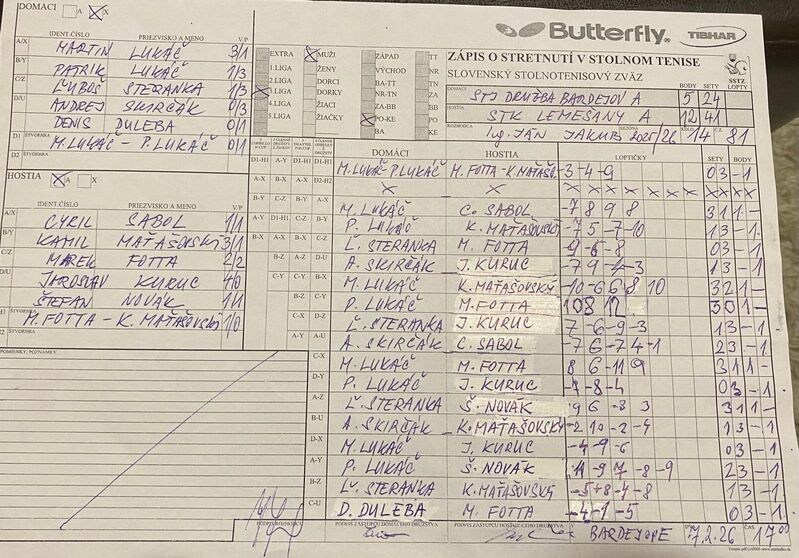 DOMÁCI
A X
IDENT.ČÍSLO PRIEZVISKO A MENO V/P
A/X MARTIN LUKÁČ 3/1
B/Y PATRIK LUKÁČ 1/3
C/Z ĽUBOŠ STERANKA 1/3
D/U ANDREJ SKIRČÁK 0/3
DENIS DULEBA 0/1
D1 ŠTVORHRA M. LUKÁČ - P. LUKÁČ 0/1
D2
HOSTIA
A X
IDENT.ČÍSLO PRIEZVISKO A MENO V/P
A/X CYRIL SABOL 1/1
B/Y KAMIL MAŤAŠOVSKÝ 3/1
C/Z MAREK FOTTA 2/2
D/U JAROSLAV KURUC 4/0
ŠTEFAN NOVÁK 1/1
H1 ŠTVORHRA M. FOTTA - K. MAŤAŠOVSKÝ 1/0
H2
POZNÁMKY
EXTRA
1.LIGA
2.LIGA
3.LIGA
4.LIGA
5.LIGA
MUŽI
ŽENY
DORCI
DORKY
ŽIACI
ŽIAČKY
ZÁPAD
VÝCHOD
BA-TT
NR-TN
ZA-BB
PO-KE
BA
TT
NR
TN
ZA
BB
PO
KE
Butterfly
TIBHAR
ZÁPIS O STRETNUTÍ V STOLNOM TENISE
SLOVENSKÝ STOLNOTENISOVÝ ZVÄZ
SSTZ
DOMÁCI BODY SETY LOPTY
STJ DRUŽBA BARDEJOV A 5 24
HOSTIA
STK LEMEŠANY A 12 41
ROZHODCA SEZÓNA KOLO
Ing. JÁN JAKUB 2025/26 14 81
DOMÁCI HOSTIA LOPTIČKY SETY BODY
D1-H1 M. LUKÁČ-P. LUKÁČ M. FOTTA-K. MAŤAŠ. -3 -4 -9 03 -1
D2-H2 X X X X X X X X X X X
M. LUKÁČ C. SABOL -7 8 9 8 31 1-
P. LUKÁČ K. MAŤAŠOVSKÝ -7 5 -7 -10 13 -1
Ľ. STERANKA M. FOTTA -9 -6 -8 03 -1
A. SKIRČÁK J. KURUC -7 9 -4 -3 13 -1
M. LUKÁČ K. MAŤAŠOVSKÝ -10 -6 6 8 10 32 1-
P. LUKÁČ M. FOTTA 10 8 12 30 1-
Ľ. STERANKA J. KURUC 7 -6 -9 -3 13 -1
A. SKIRČÁK C. SABOL -7 6 -7 4 -1 23 -1
C-X M. LUKÁČ M. FOTTA 8 6 -11 9 31 1-
D-Y P. LUKÁČ J. KURUC -4 -8 -4 03 -1
A-Z Ľ. STERANKA Š. NOVÁK 9 6 -8 3 31 1-
B-U A. SKIRČÁK K. MAŤAŠOVSKÝ -2 10 -2 -4 13 -1
D-X M. LUKÁČ J. KURUC -4 -9 -6 03 -1
A-Y P. LUKÁČ Š. NOVÁK 11 -9 7 -8 -9 23 -1
B-Z Ľ. STERANKA K. MAŤAŠOVSKÝ -5 8 -4 -8 13 -1
C-U D. DULEBA M. FOTTA -4 -1 -5 03 -1
PODPIS ROZHODCU PODPIS ZÁSTUPCU DOMÁCEHO DRUŽSTVA PODPIS ZÁSTUPCU HOSŤUJÚCEHO DRUŽSTVA V BARDEJOVE 7.2.26 ČAS 17 00